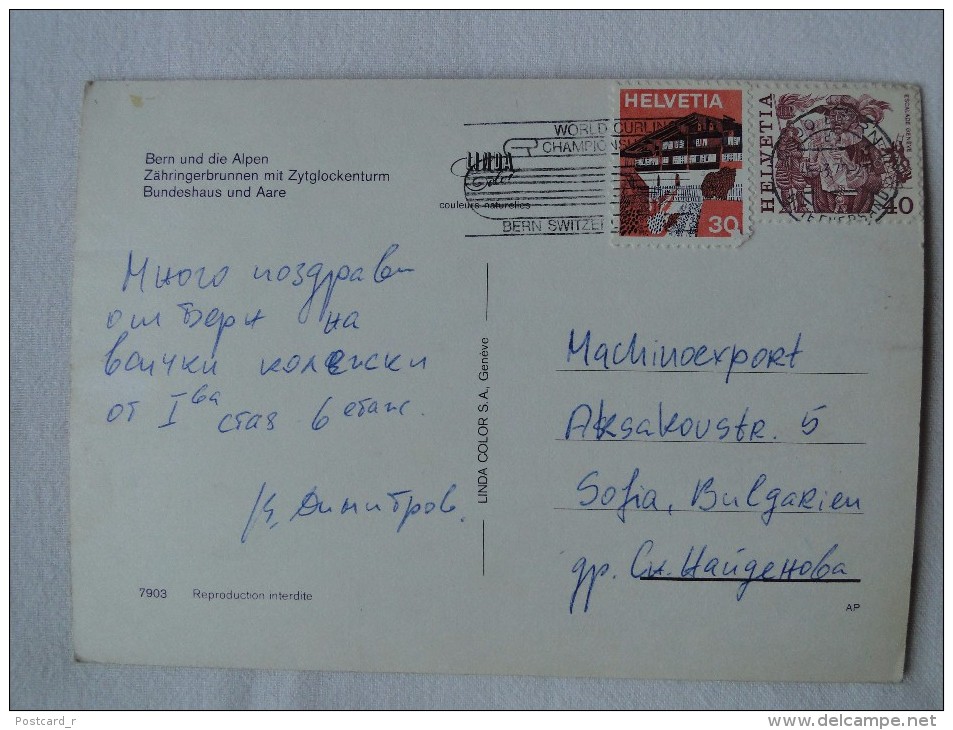 Bern und die Alpen
Zähringerbrunnen mit Zytglockenturm
Bundeshaus und Aare
LINDA
Color
couleurs naturelles
WORLD CURLING
CHAMPIONS
BERN SWITZER
HELVETIA
30
HELVETIA
ESCALADE GENÈVE
40
Много поздрави
от Берн на
всички колежки
от I ва стая 6 етаж.
К. Димитров.
LINDA COLOR S.A., Genève
Machinoexport
Aksakovstr. 5
Sofia, Bulgarien
др. Сн. Найденова
7903 Reproduction interdite
AP
Postcard_r
www.delcampe.net